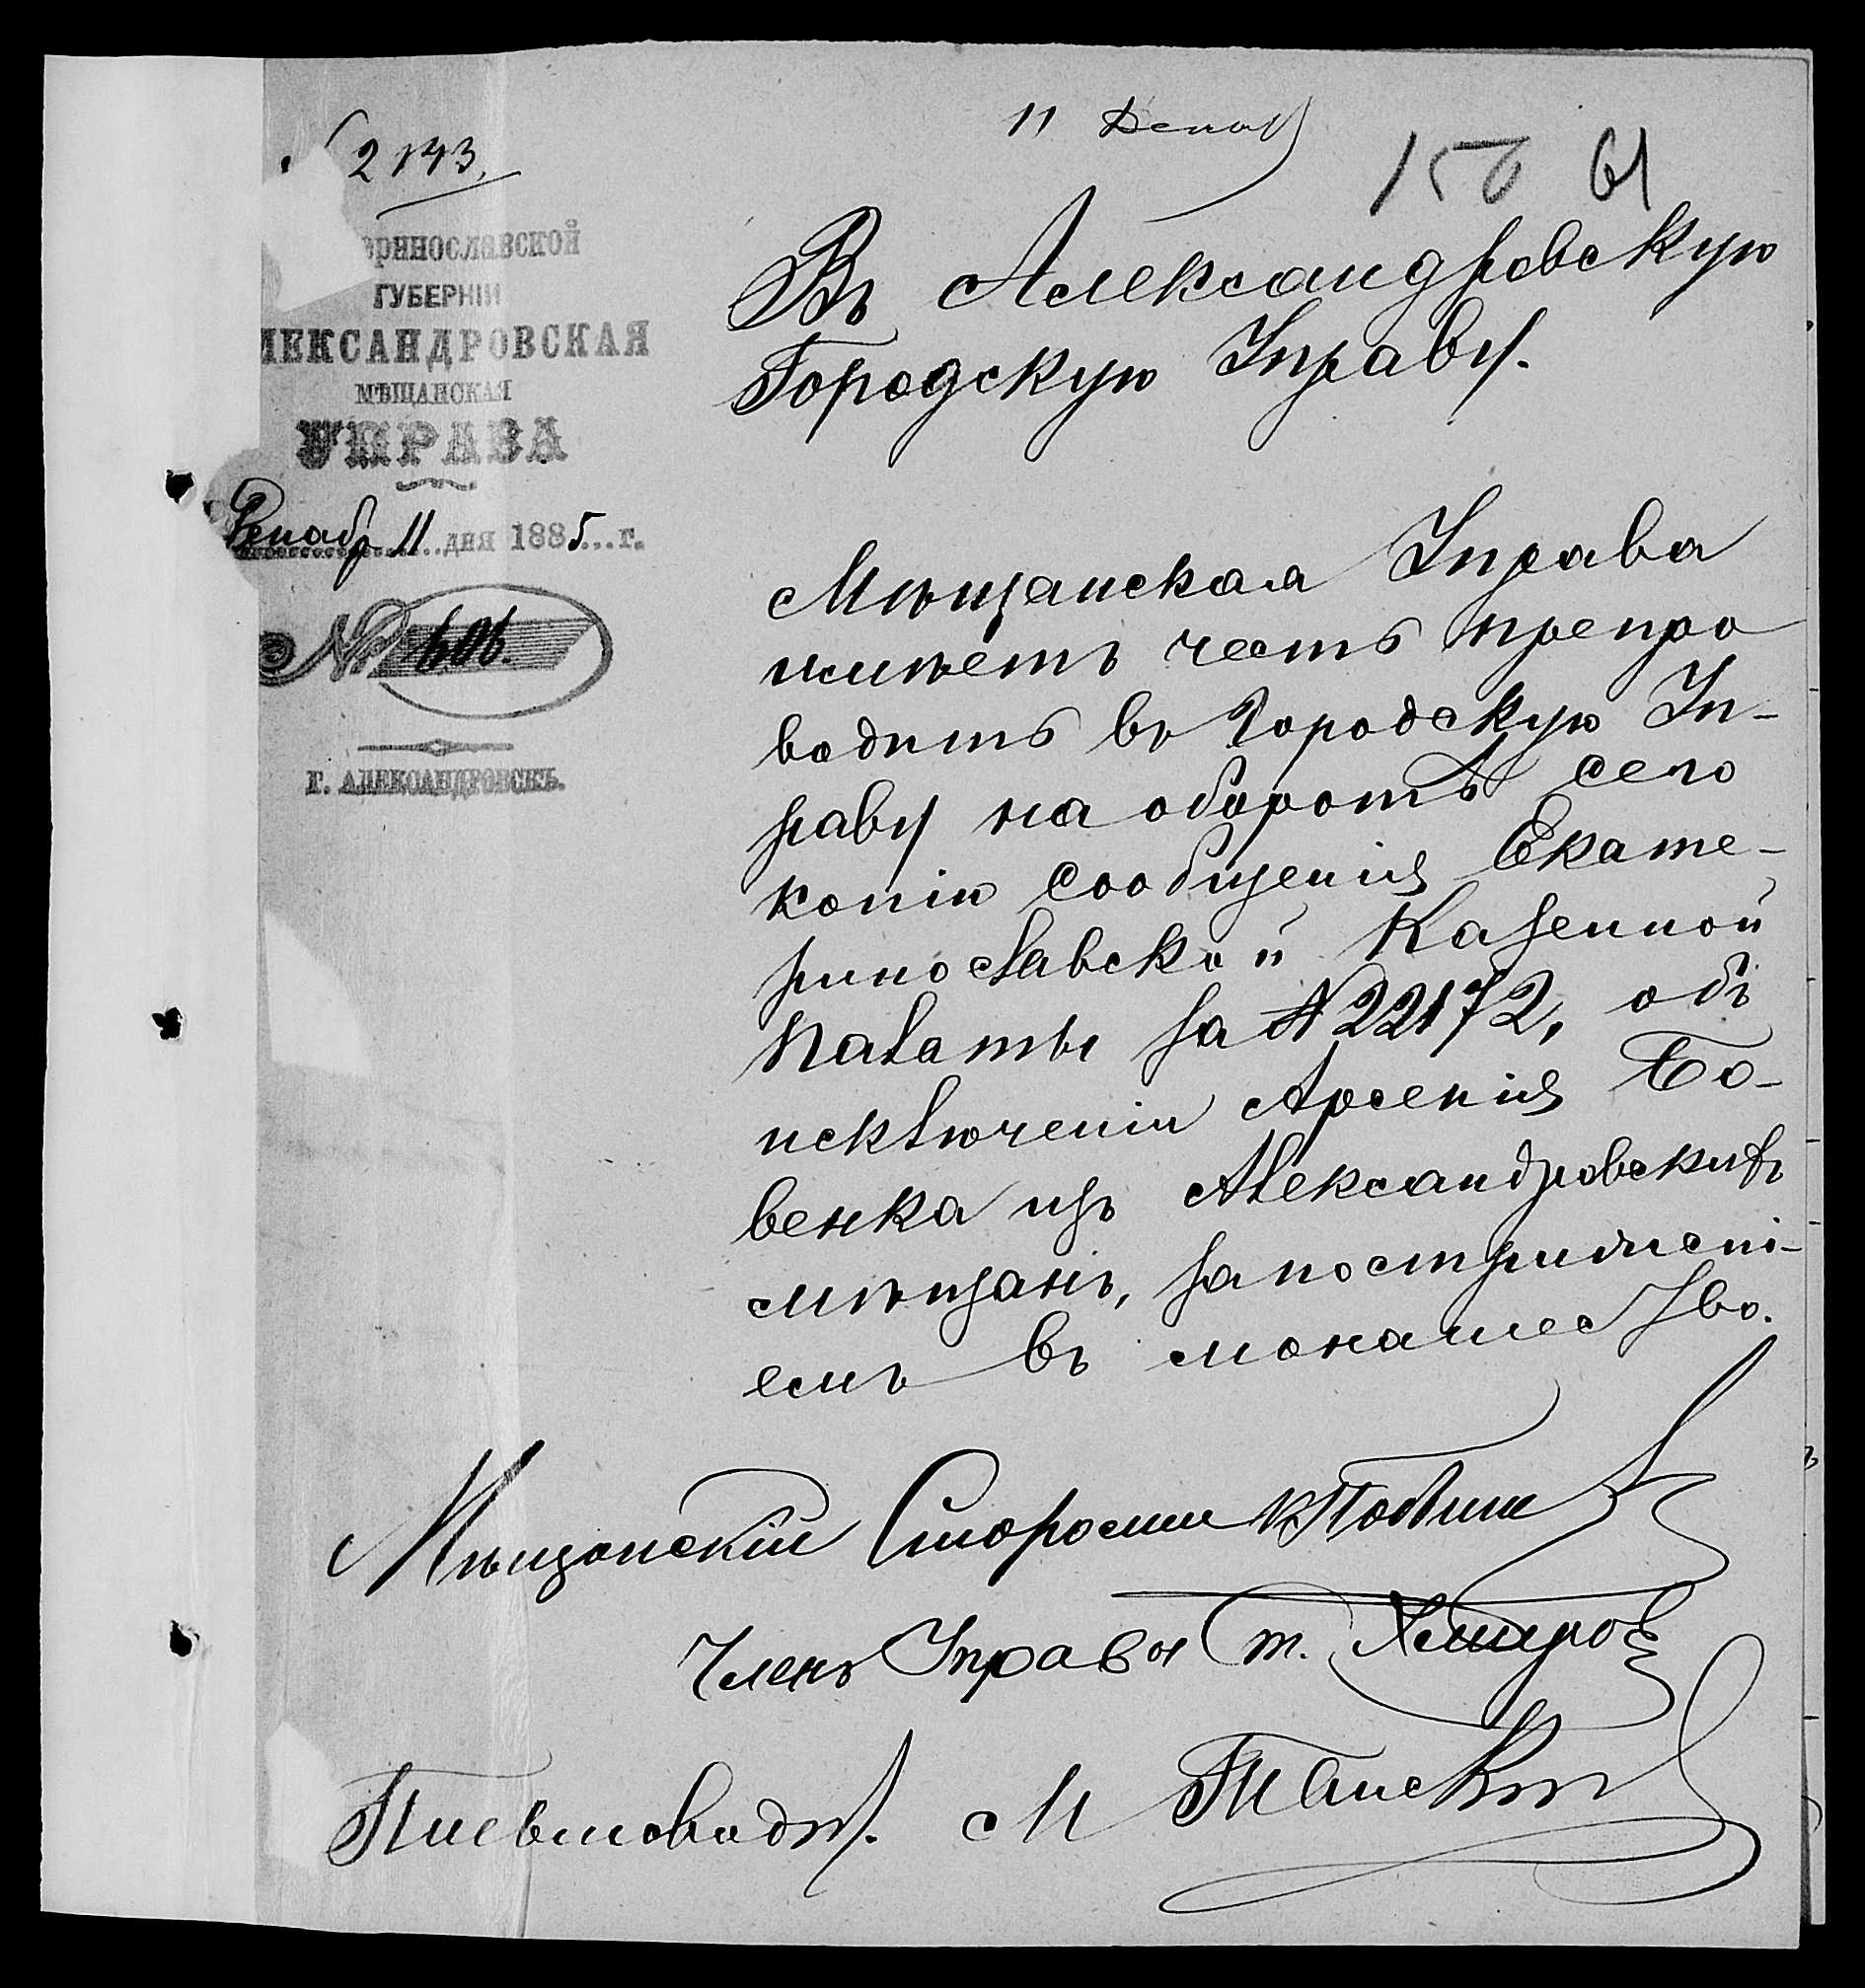 № 2143.
11 Декаб
156 61
Екатеринославской
ГУБЕРНІИ
АЛЕКСАНДРОВСКАЯ
МѢЩАНСКАЯ
УПРАВА
Декабр 11 дня 1885 г.
№ 606.
Г. АЛЕКСАНДРОВСКЪ.
Въ Александровскую
Городскую Управу.
Мѣщанская Управа
имѣетъ честь препро
водить въ Городскую Уп-
раву на оборотѣ сего
копію сообщенія Екате-
ринославской Казенной
Палаты за № 22172, объ
исключеніи Арсенія Бо-
венка изъ Александровскихъ
мѣщанъ, за постриженi-
емъ въ монашество.
Мѣщанскій Староста
Членъ Управы
Письмовод. М